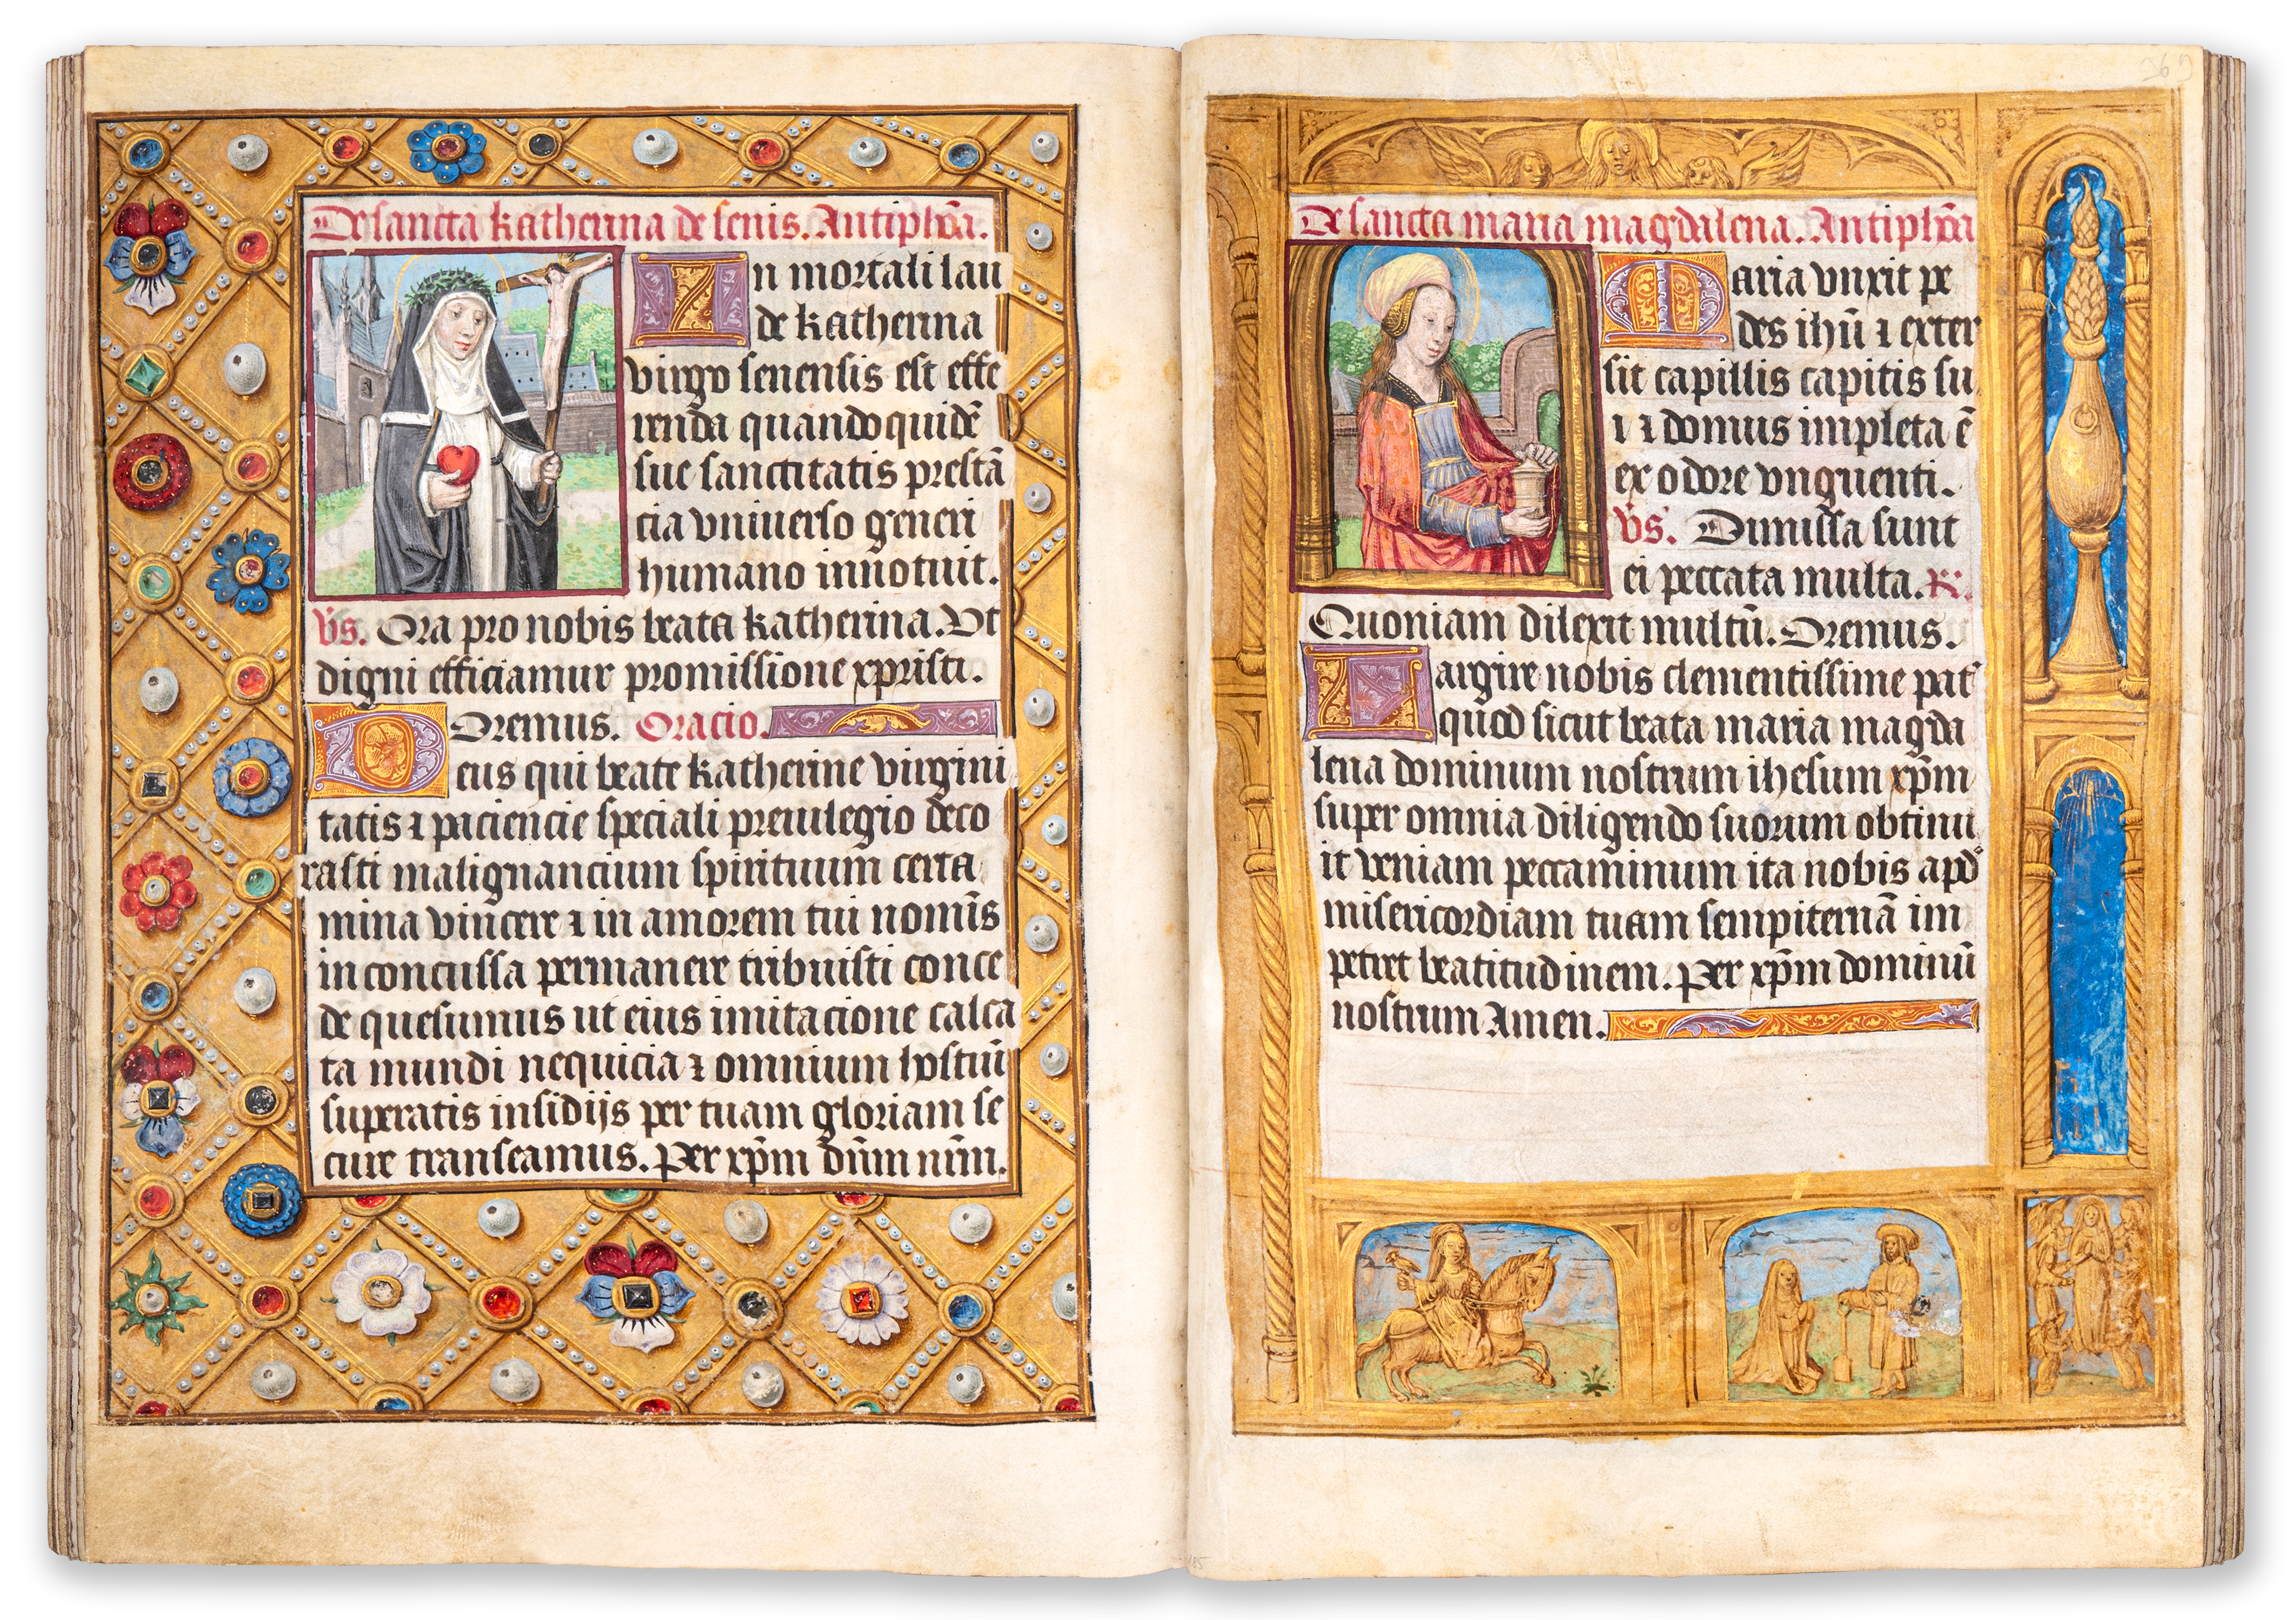 De sancta katherina de senis. Antiphõa.
In mortali lau
de katherina
virgo senensis est effe
renda quandoquidẽ
sue sanctitatis prestã
cia vniuerso generi
humano innotuit.
V̄s. Ora pro nobis beata katherina. Vt
digni efficiamur promissione xpristi.
Oremus. Oracio.
Deus qui beate katherine virgini
tatis ⁊ paciencie speciali preuilegio deco
rasti malignancium spirituum certa
mina vincere ⁊ in amorem tui nomīs
inconcussa permanere tribuisti conce
de quesumus ut eius imitacione calca
ta mundi nequicia ⁊ omnium hostiū
superatis insidijs per tuam gloriam se
cure transeamus. Per xp̄m dn̄m nr̄m.
De sancta maria magdalena. Antiphõa
Maria vnxit pe
des ihū ⁊ exter
sit capillis capitis su
i ⁊ domus impleta ẽ
ex odore vnguenti.
V̄s. Dimissa sunt
ei peccata multa. R.
Quoniam dilexit multū. Oremus.
Largire nobis clementissime pat͛
quod sicut beata maria magda
lena dominum nostrum ihesum xp̄m
super omnia diligendo suorum obtinu
it veniam peccaminum ita nobis apd͛
misericordiam tuam sempiternã im
petret beatitudinem. Per xp̄m dominū
nostrum Amen.